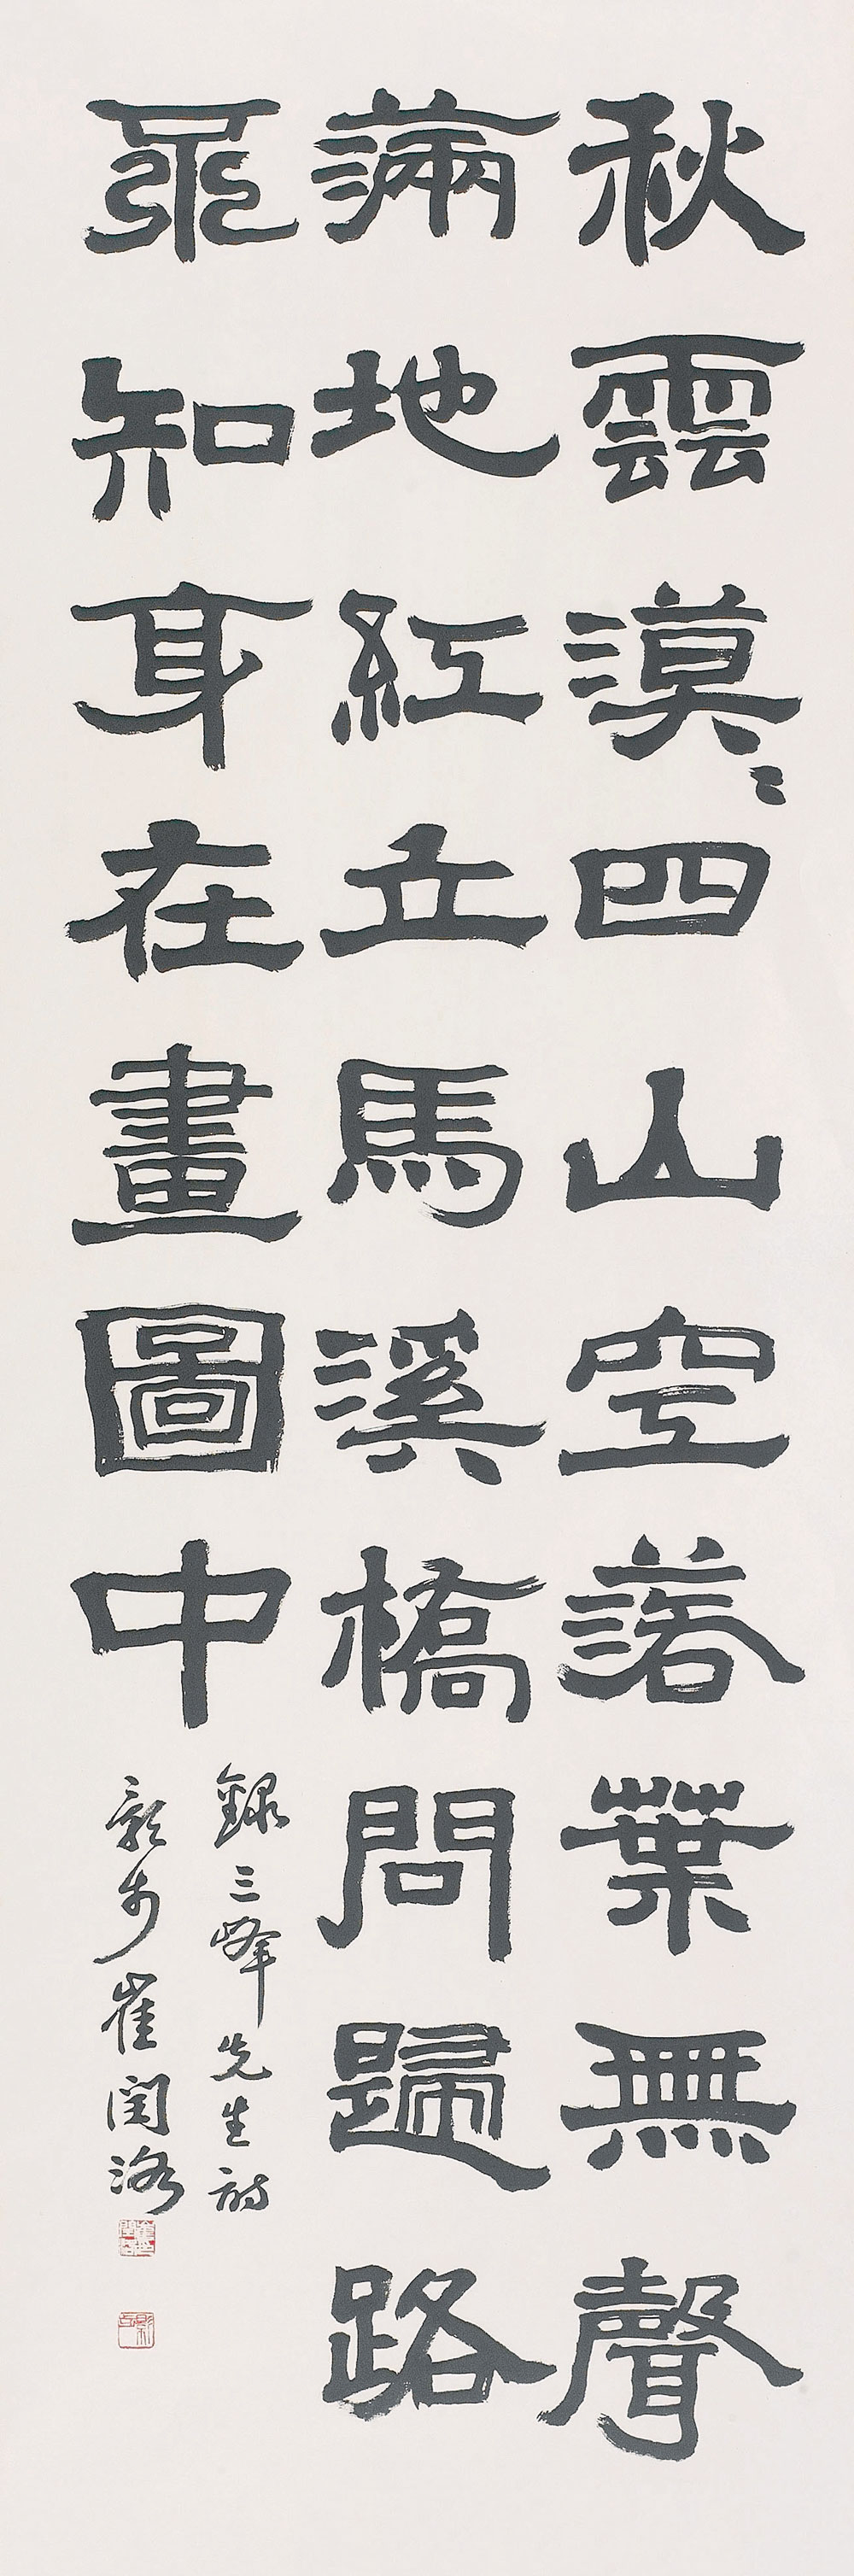 秋雲漠〻四山空落葉無聲
滿地紅立馬溪橋問歸路
不知身在畫圖中
錄三峰先生詩
影步崔閏洛